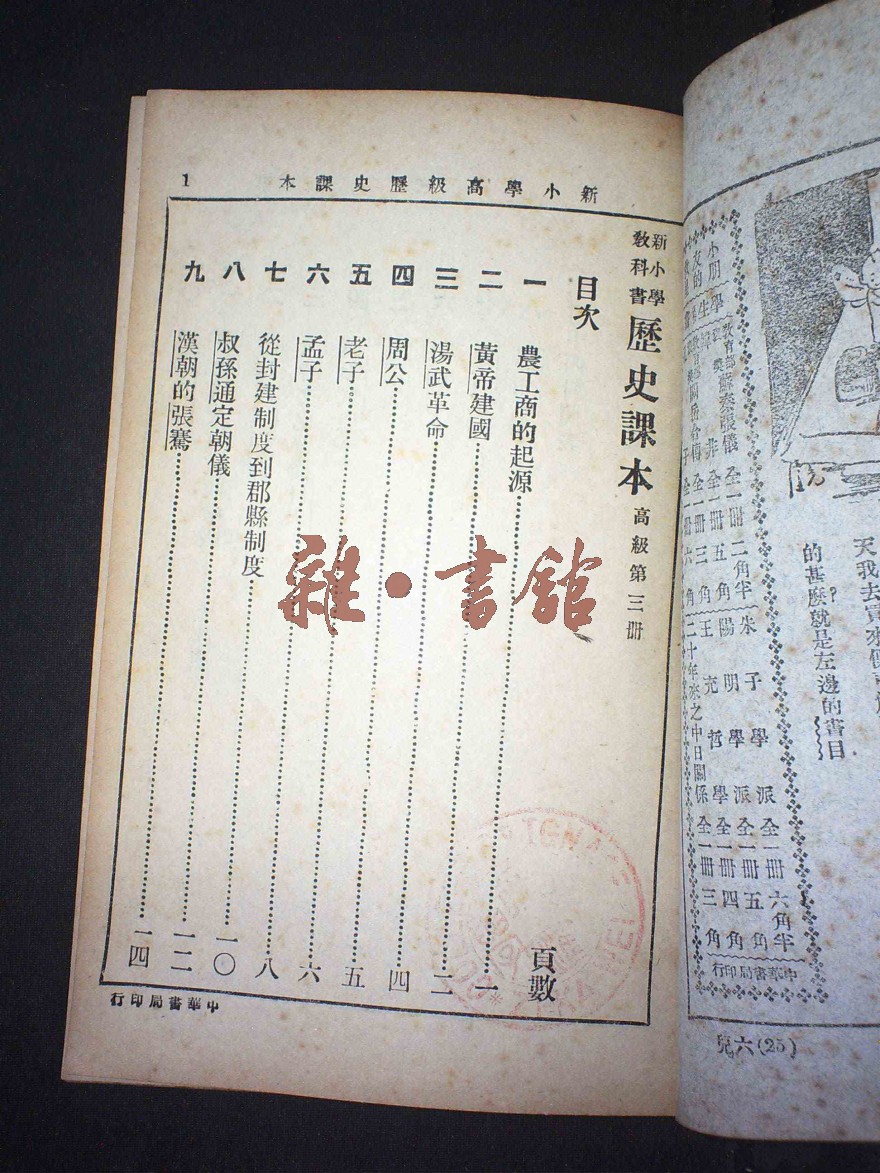 新小學高級歷史課本
1
新小學教科書 歷史課本 高級第三冊
目次 頁數
一 農工商的起源 一
二 黃帝建國 二
三 湯武革命 四
四 周公 五
五 老子 六
六 孟子 八
七 從封建制度到郡縣制度 一〇
八 叔孫通定朝儀 一二
九 漢朝的張騫 一四
中華書局印行
雜·書館
天我去買來
的甚麼?就是左邊的書目
蘇秦張儀 全一冊 二角半
非 全一冊 五角
全一冊 三角
全一冊 六角
朱子學派 全一冊 六角半
陽明學派 全一冊 五角
王充哲學 全一冊 四角
二十年來之中日關係 全一冊 三角
中華書局印行
兒六(25)